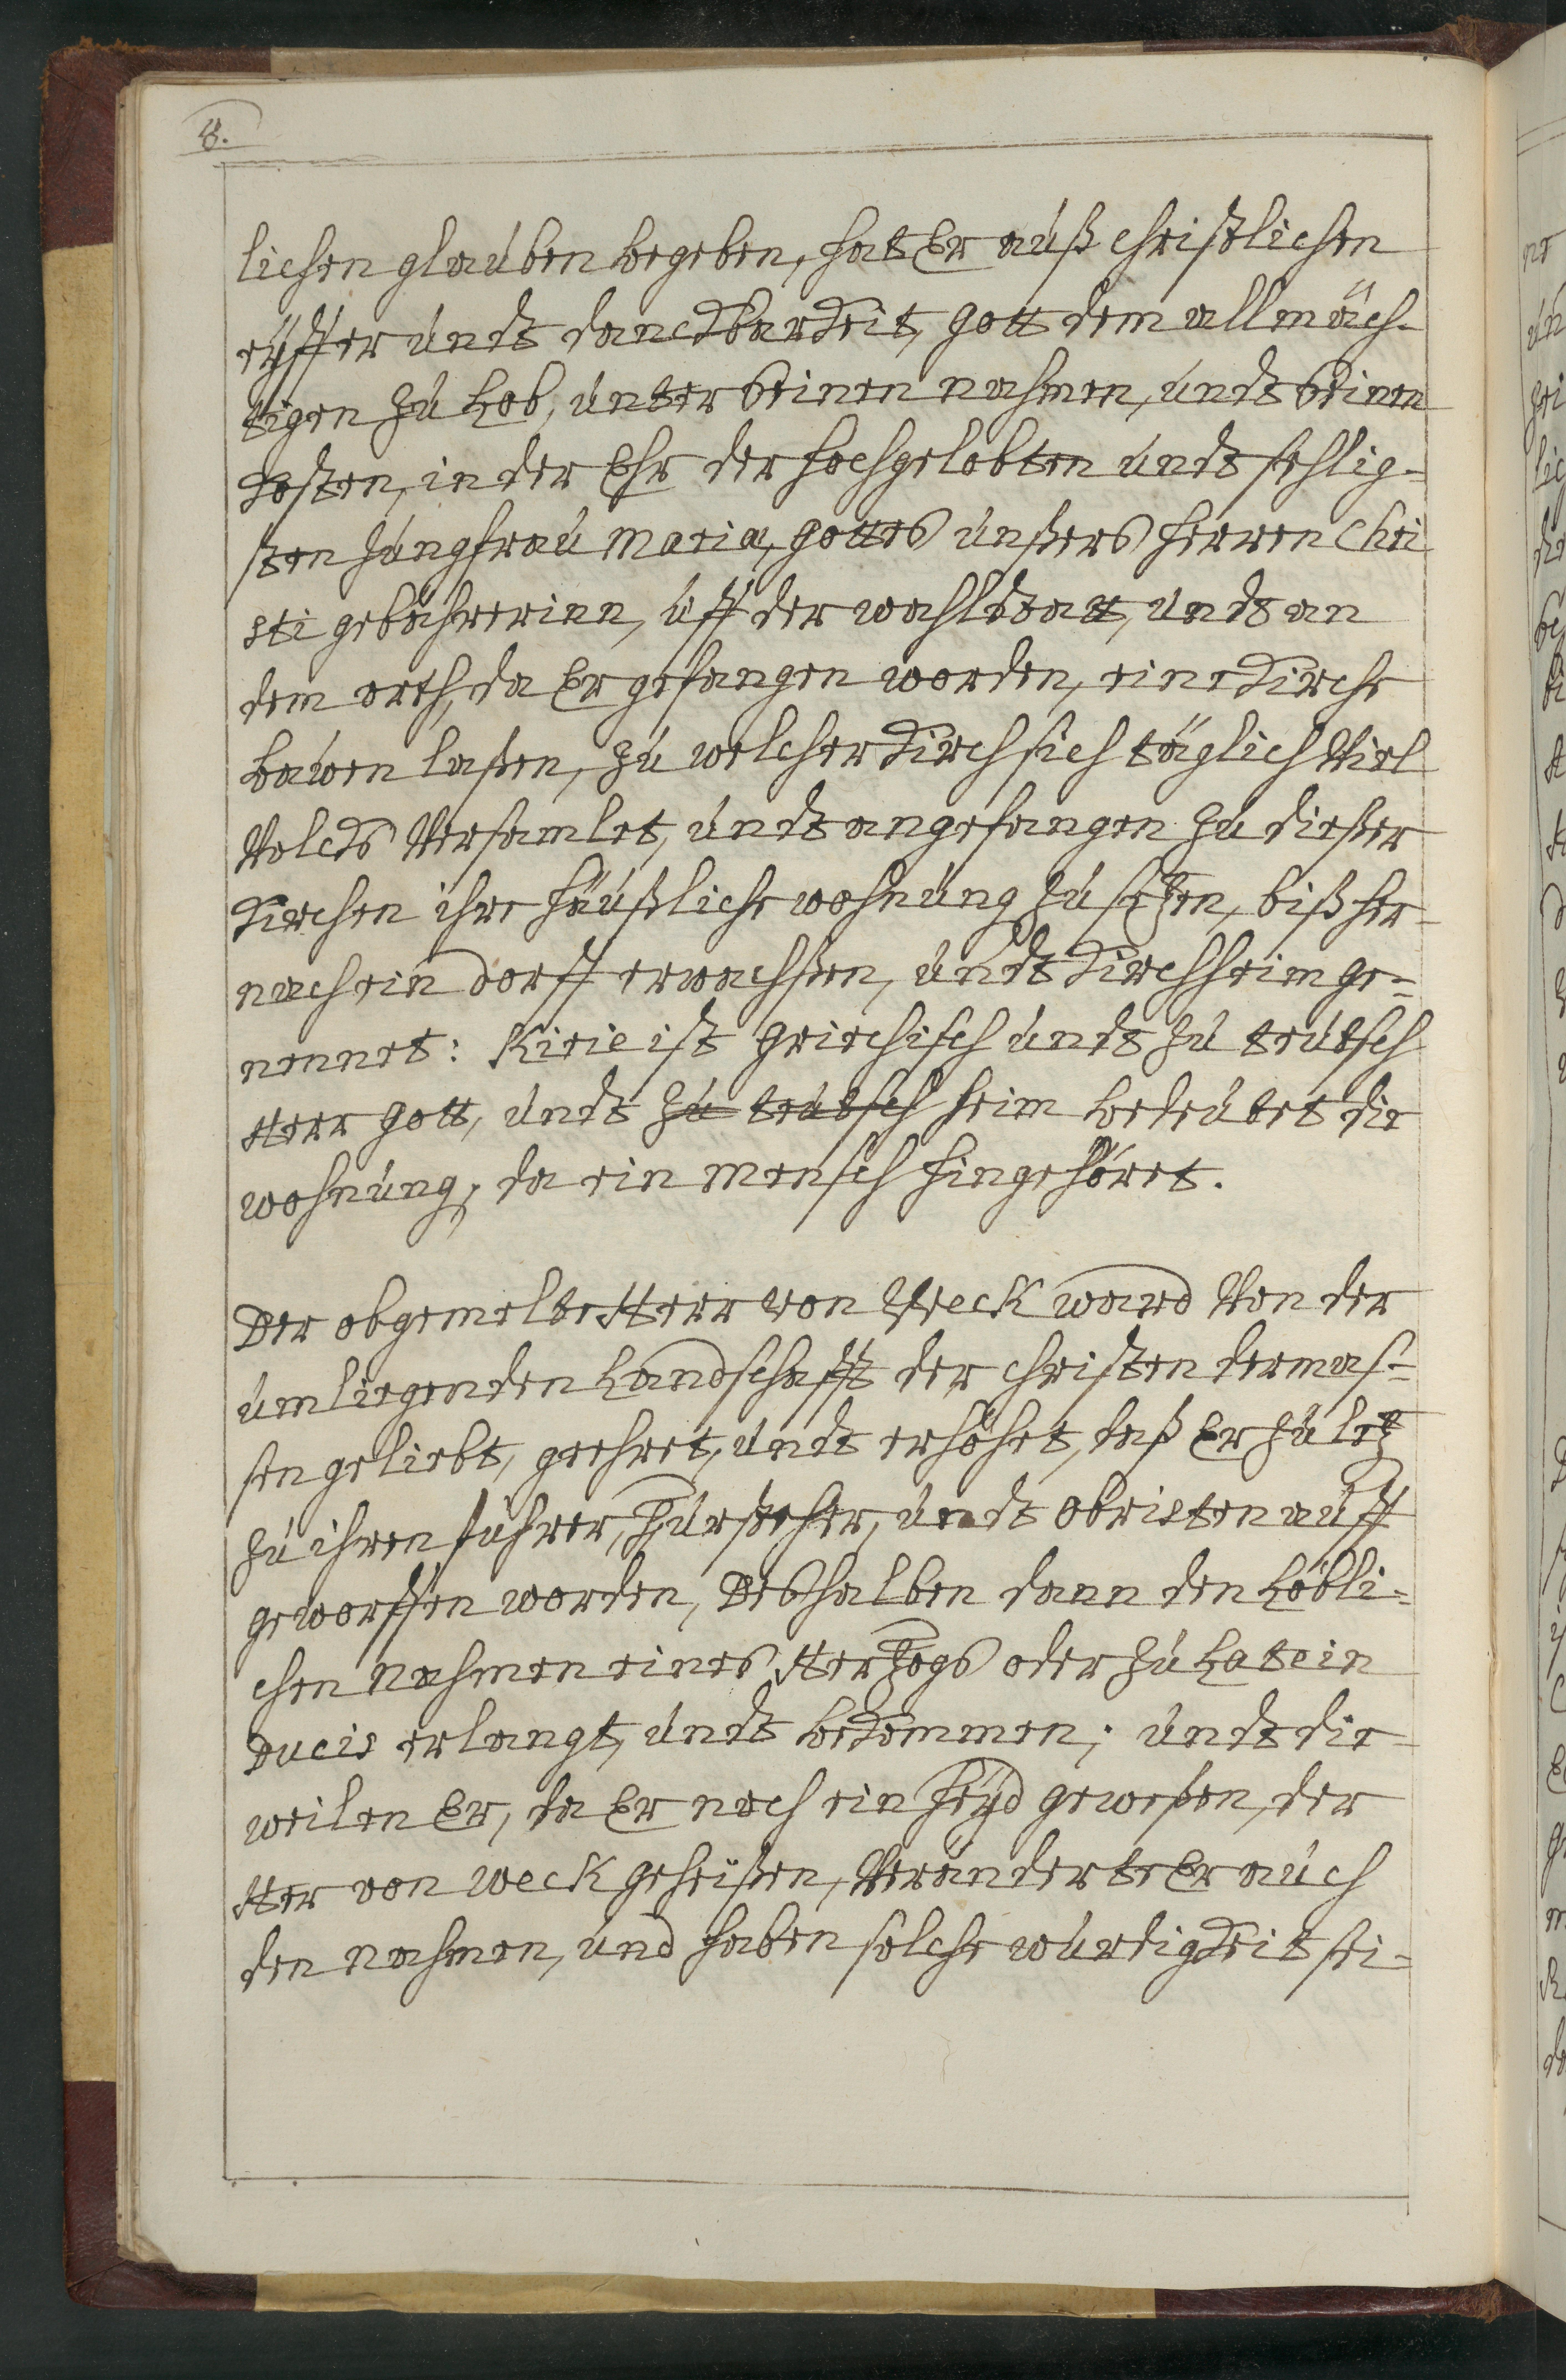 8.
lichen glauben begeben, hat Er auß christlichen
eyffer undt danckbarkeit, Gott dem allmäch-
tigen zu Lob, unter seinen nahmen, undt seinen
kosten, in der Ehr der hochgelobten undt sehlig-
sten Jungfrau Maria, Gottes unßers herren Chri
sti gebährerinn, uff der wahlstatt, undt an
dem orth, da Er gefangen worden, eine Kirche
bauen laßen, zu welcher Kirch sich täglich Viel
Volcks Versamlet, undt angefangen zu dießer
Kirchen ihre häußliche wohnung zu setzen, biß her-
nach ein Dorff erwachßen, undt Kirchheim ge-
nennet: Kirie ist Griechisch undt zu teutsch
Herr Gott, undt zu teutsch heim bedeutet die
wohnung, da ein Mensch hingehöret.
Der obgemelte Herr von Weck ward Von der
umliegenden Landschafft der Christen dermas-
sen geliebt, geehret, undt erhöhet, daß Er zu letz
zu ihren führer, Fürsteher, undt Obristen auff
geworffen worden, Deshalben dann den Löbli-
chen Nahmen eines Hertzogs oder zu Latein
Ducis erlangt, undt bekommen; undt die-
weilen Er, da Er noch ein heyd geweßen, der
Her von Weck geheißen, Veränderte Er auch
den Nahmen, und haben solche würdigkeit sei-